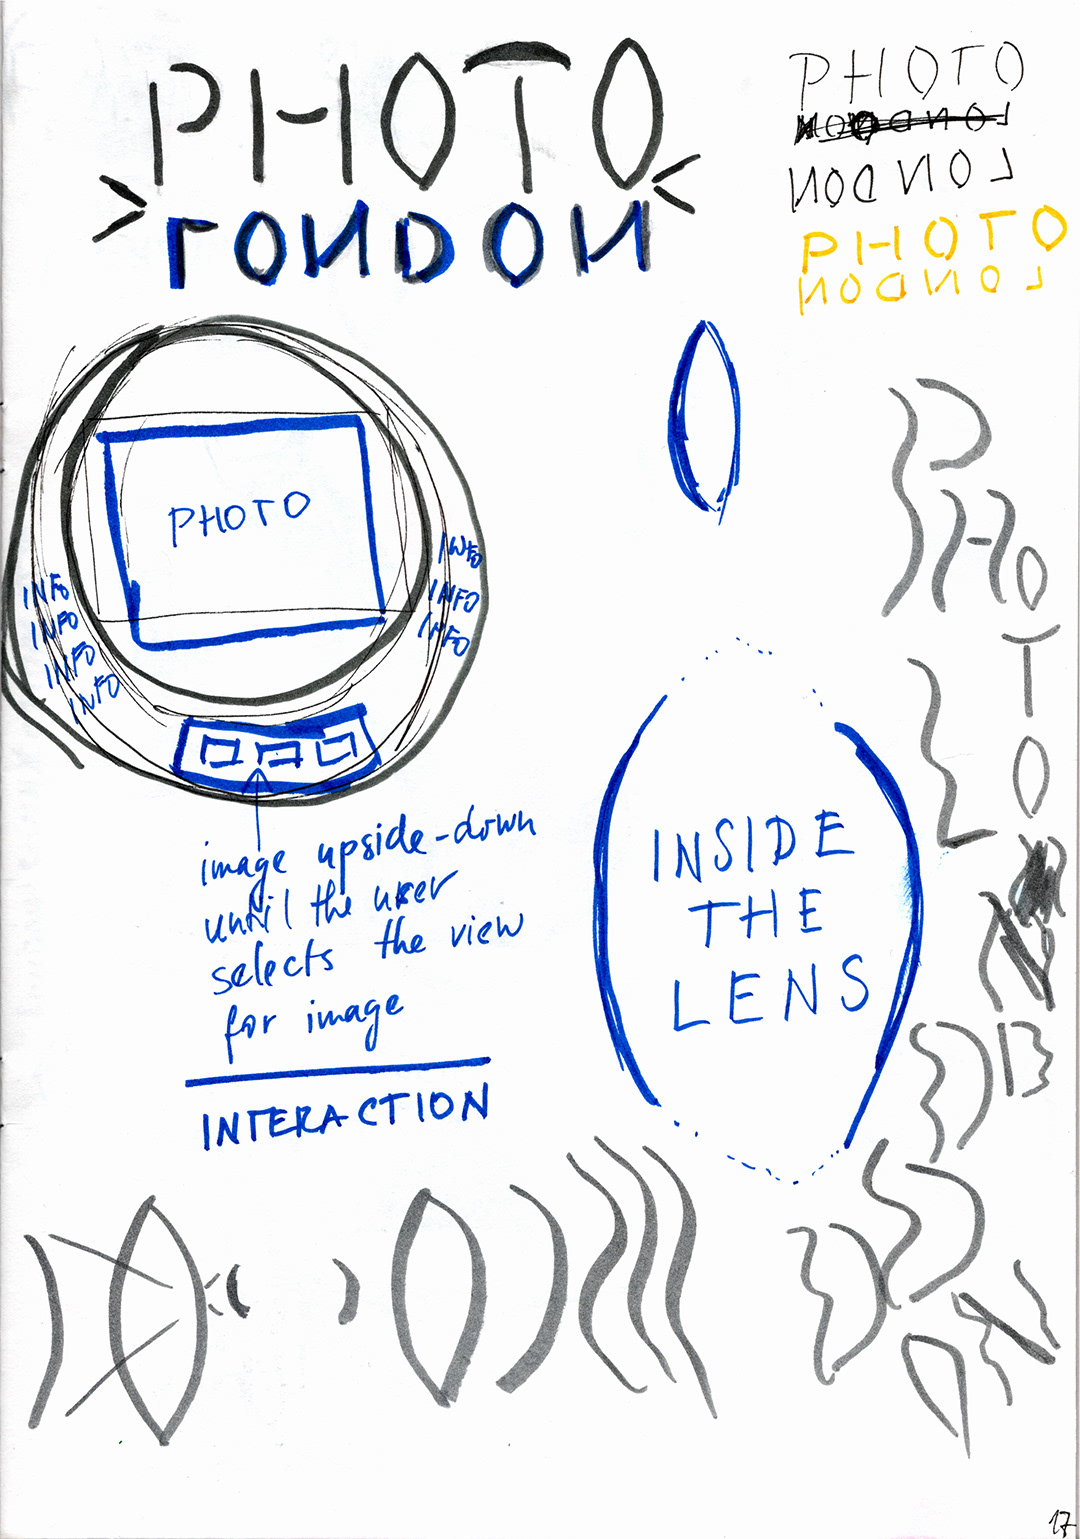 PHOTO
LONDON
PHOTO
LONDON
LONDON
PHOTO
LONDON
PHOTO
INFO
INFO
INFO
INFO
INFO
INFO
INFO
image upside-down
until the user
selects the view
for image
INTERACTION
INSIDE
THE
LENS
P
HO
T
O
L
17